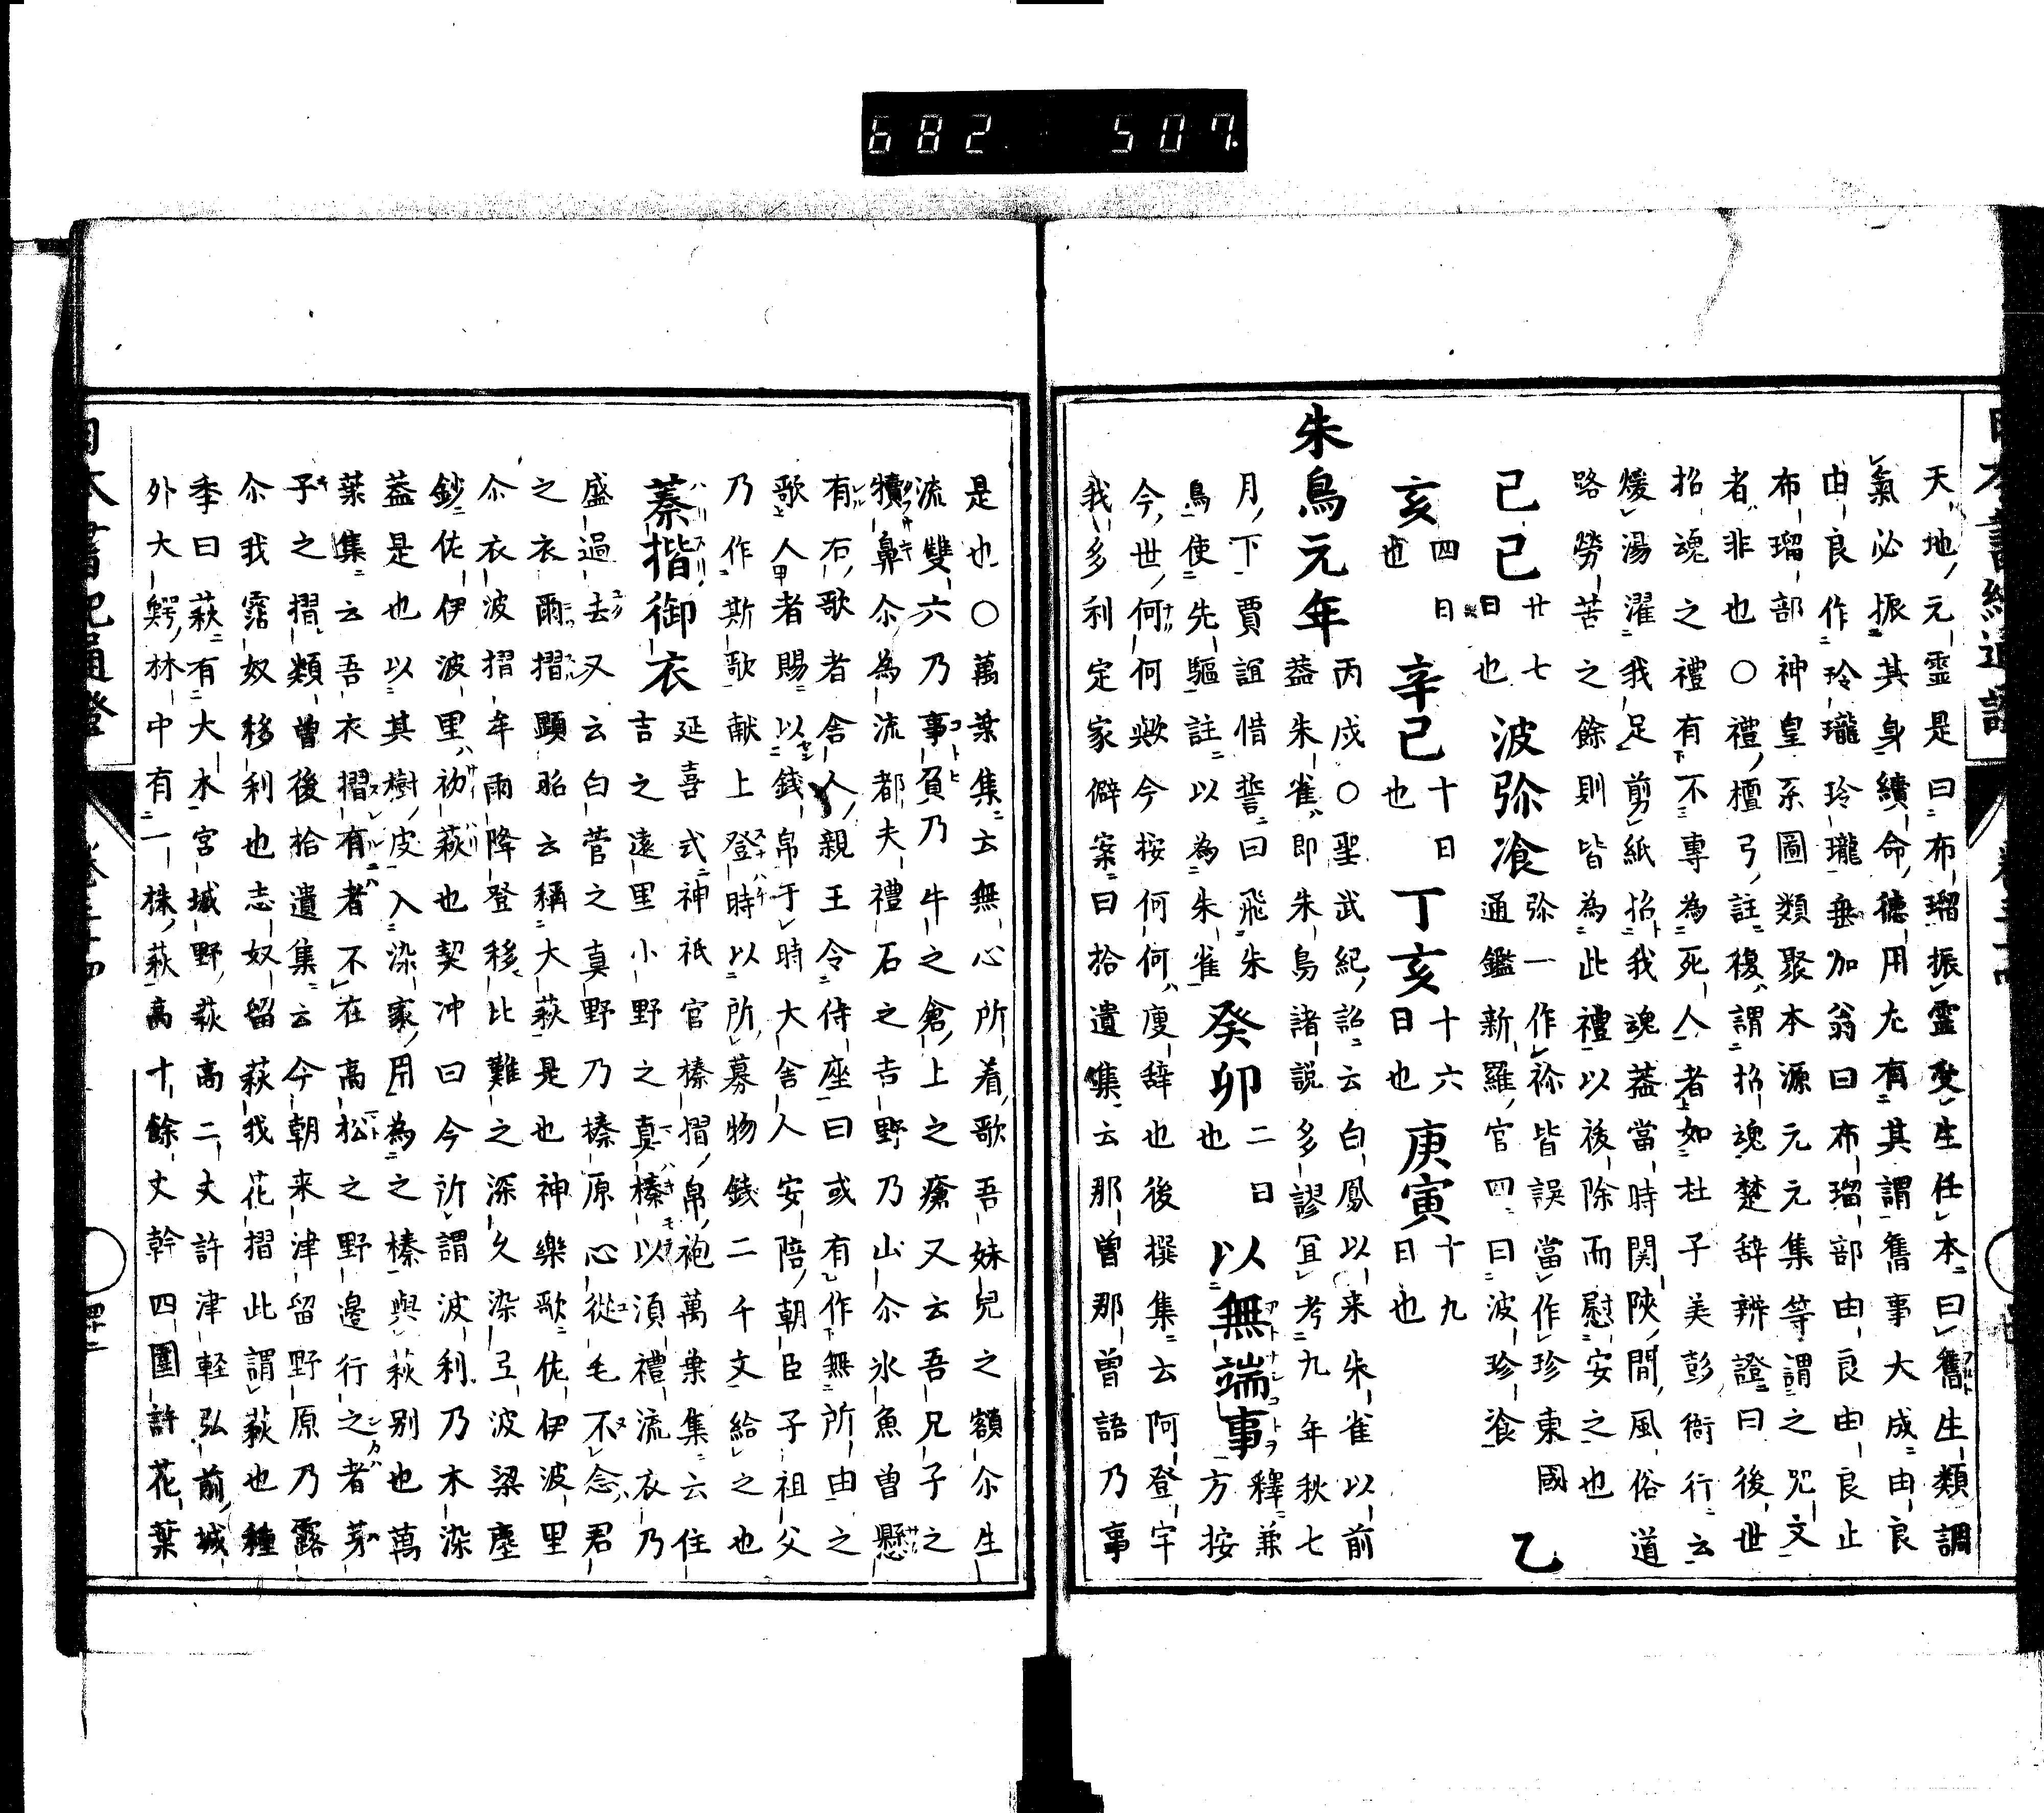 682 507
天地元霊是曰布瑠振霊受生任本曰舊生類調
氣必振其身續命德用尤有其謂舊事大成由良
由良作玲瓏玲瓏垂加翁曰布瑠部由良由良止
布瑠部神皇系圖類聚本源元元集等謂之咒文
者非也○禮檀弓註復謂招魂楚辞辨證曰後世
招魂之禮有不專為死人者如杜子美彭衙行云
煖湯濯我足剪紙招我魂蓋當時関陝間風俗道
路勞苦之餘則皆為此禮以祓除而慰安之也
己巳 廿七日也 波弥飡 弥一作祢皆誤當作珍東國通鑑新羅官四曰波珍飡 乙
亥 四日也 辛巳 十日也 丁亥 十六日也 庚寅 十九日也
朱鳥元年 丙戌○聖武紀詔云白鳳以来朱雀以前
蓋朱雀即朱鳥諸説多謬冝考九年秋七
月下賈誼借誓曰飛朱鳥使先驅註以為朱雀 癸卯 二日也 以無端事 釋兼方按
今世何何歟今按何何廋辞也後撰集云阿登宇
我多利定家僻案曰拾遺集云那曽那曽語乃事
是也○萬葉集云無心所着歌吾妹兒之額尒生
流雙六乃事負乃牛之倉上之瘡又云吾兄子之
犢鼻尒為流都夫禮石之吉野乃山尒氷魚曽懸
有右歌者舎人親王令侍座曰或有作無所由之
歌人者賜以錢帛于時大舎人安陪朝臣子祖父
乃作斯歌献上登時以所募物錢二千文給之也
蓁揩御衣 延喜式神祇官榛摺帛袍萬葉集云住
吉之遠里小野之真榛以湏禮流衣乃
盛過去又云白菅之真野乃榛原心従毛不念君
之衣爾摺顕昭云稱大萩是也神樂歌佐伊波里
尒衣波摺牟雨降登移比難之深久染弖波梁塵
鈔佐伊波里初萩也契冲曰今所謂波利乃木染
葢是也以其樹皮入染家用為之榛與萩別也萬
葉集云吾衣摺有者不在高松之野邊行之者芽
子之摺類曽後拾遺集云今朝来津留野原乃露
尒我霑奴移利也志奴留萩我花摺此謂萩也種
季曰萩有大木宮城野萩高二丈許津軽弘前城
外大鰐林中有一株萩高十餘丈幹四圍許花葉